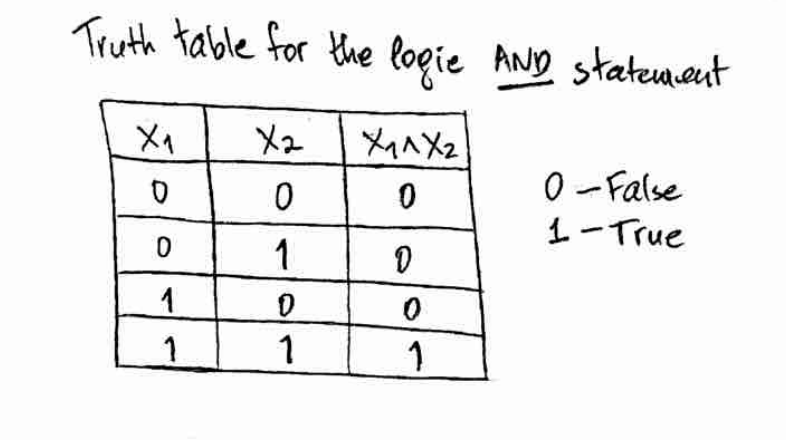 Truth table for the logic AND statement
X1 X2 X1∧X2
0 0 0
0 1 0
1 0 0
1 1 1
0 – False
1 – True